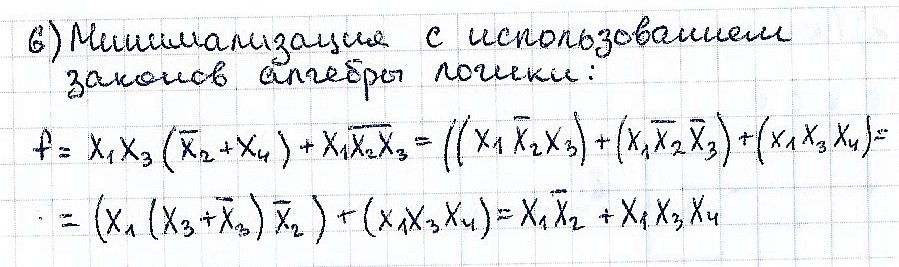 б) Минимализация с использованием
законов алгебры логики:
f = X₁X₃(X̅₂+X₄) + X₁X̅₂X̅₃ = ((X₁X̅₂X₃) + (X₁X̅₂X̅₃) + (X₁X₃X₄) =
= (X₁(X₃+X̅₃)X̅₂) + (X₁X₃X₄) = X₁X̅₂ + X₁X₃X₄